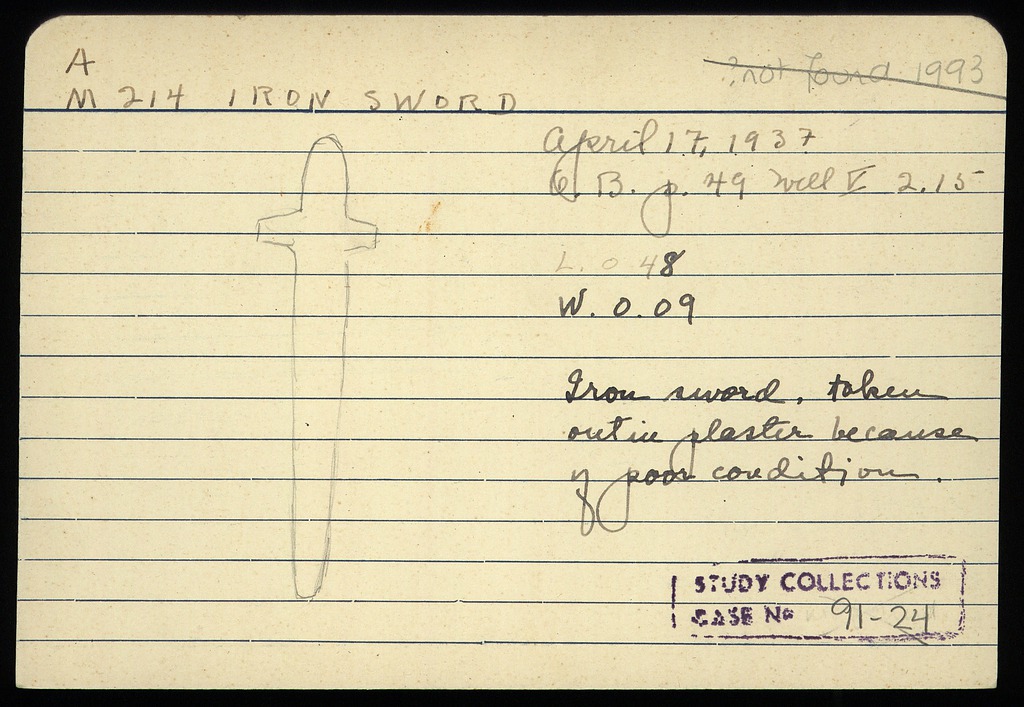 A
?not found 1993
M 214 IRON SWORD
April 17, 1937
B. p. 49 Well V 2.15
L. 0 48
W. 0.09
Iron sword, taken
out in plaster because
of poor condition.
STUDY COLLECTIONS
CASE No 91-24